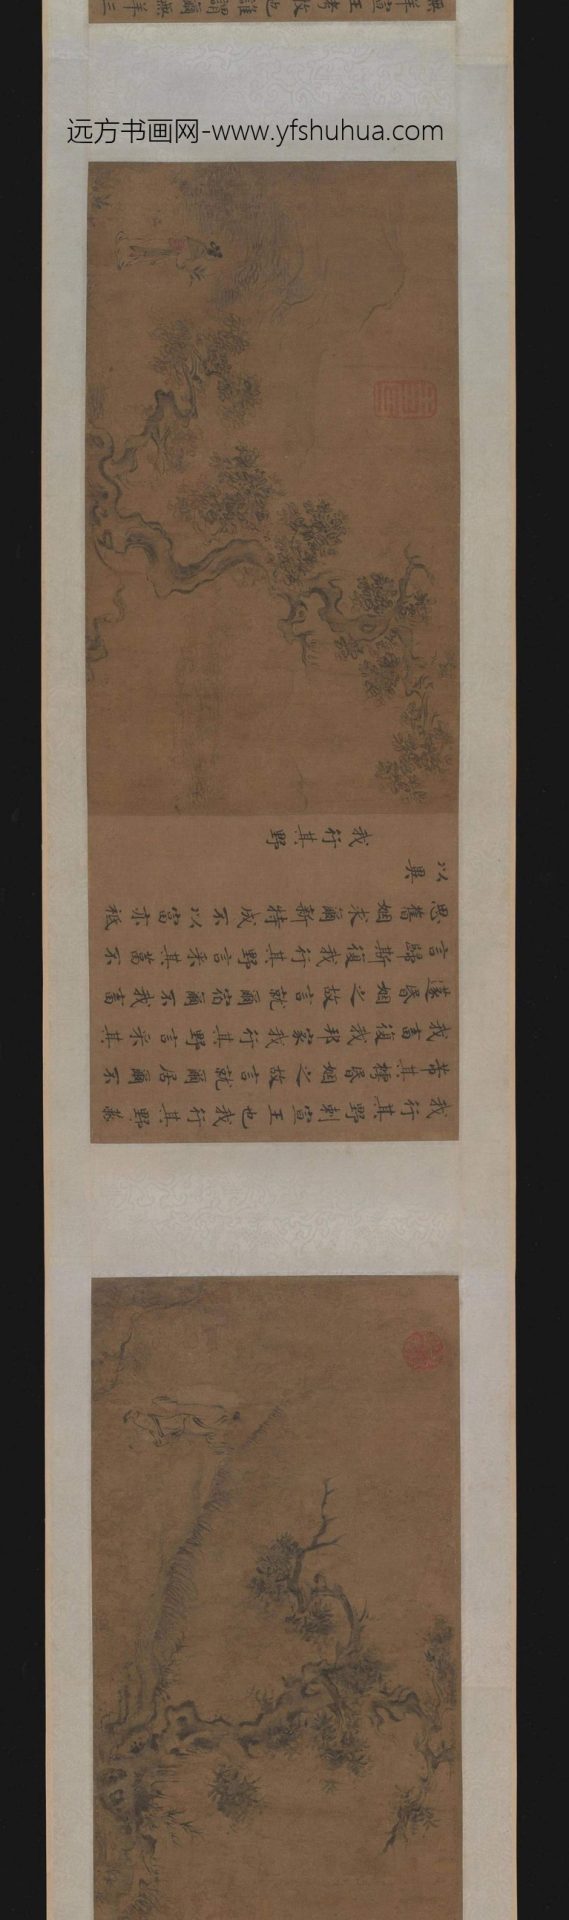 远方书画网-www.yfshuhua.com
我行其野刺宣王也我行其野蔽
芾其樗昏姻之故言就爾居爾不
我畜復我邦家我行其野言采其
蓫昏姻之故言就爾宿爾不我畜
言歸斯復我行其野言采其葍不
思舊姻求爾新特成不以富亦祗
以異
我行其野
無羊宣王考牧也誰謂爾無羊三